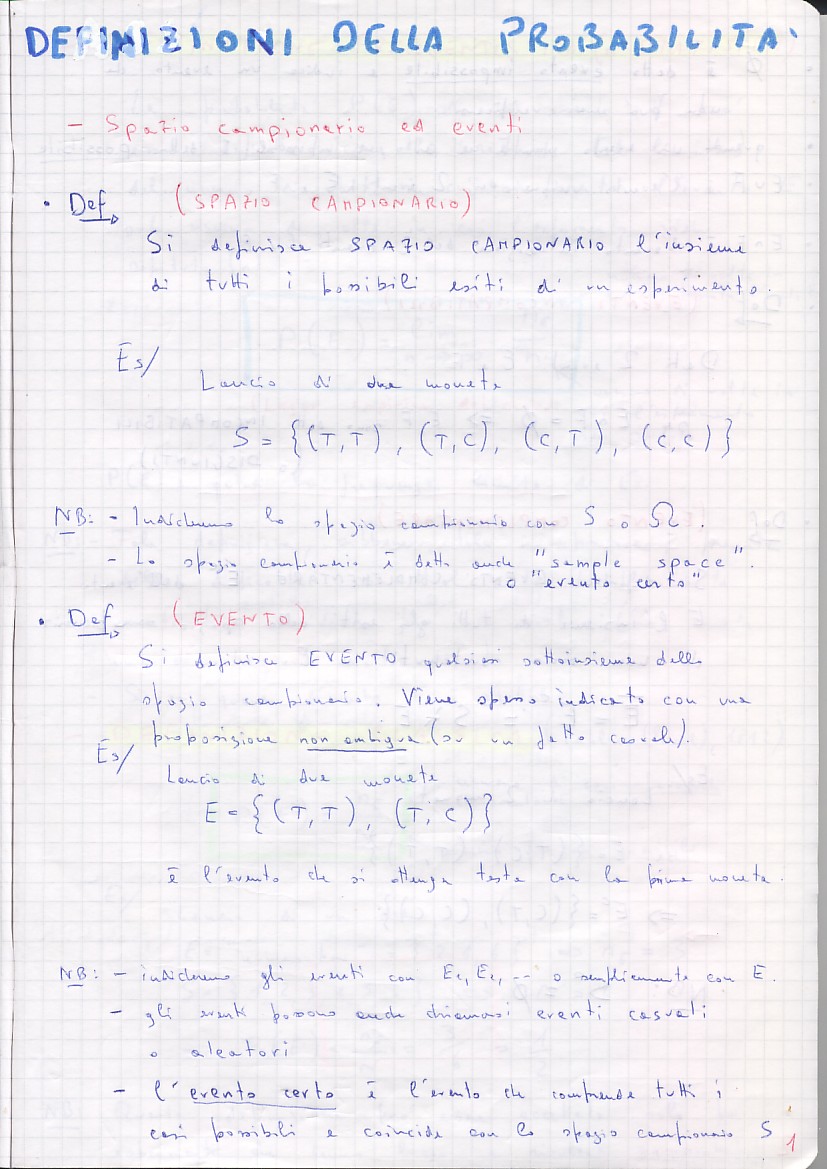 DEFINIZIONI DELLA PROBABILITA'
- Spazio campionario ed eventi
• Def (SPAZIO CAMPIONARIO)
Si definisce SPAZIO CAMPIONARIO l'insieme
di tutti i possibili esiti di un esperimento.
Es/
Lancio di due monete
S = {(T,T), (T,C), (C,T), (C,C)}
NB: - Indicheremo lo spazio campionario con S o Ω.
- Lo spazio campionario è detto anche "sample space"
o "evento certo"
• Def (EVENTO)
Si definisce EVENTO qualsiasi sottoinsieme dello
spazio campionario. Viene spesso indicato con una
proposizione non ambigua (su un fatto casuale).
Es/
Lancio di due monete
E = {(T,T), (T,C)}
è l'evento che si ottenga testa con la prima moneta.
NB: - indicheremo gli eventi con E₁, E₂, ... o semplicemente con E.
- gli eventi possono anche chiamarsi eventi casuali
o aleatori
- l'evento certo è l'evento che comprende tutti i
casi possibili e coincide con lo spazio campionario S
1